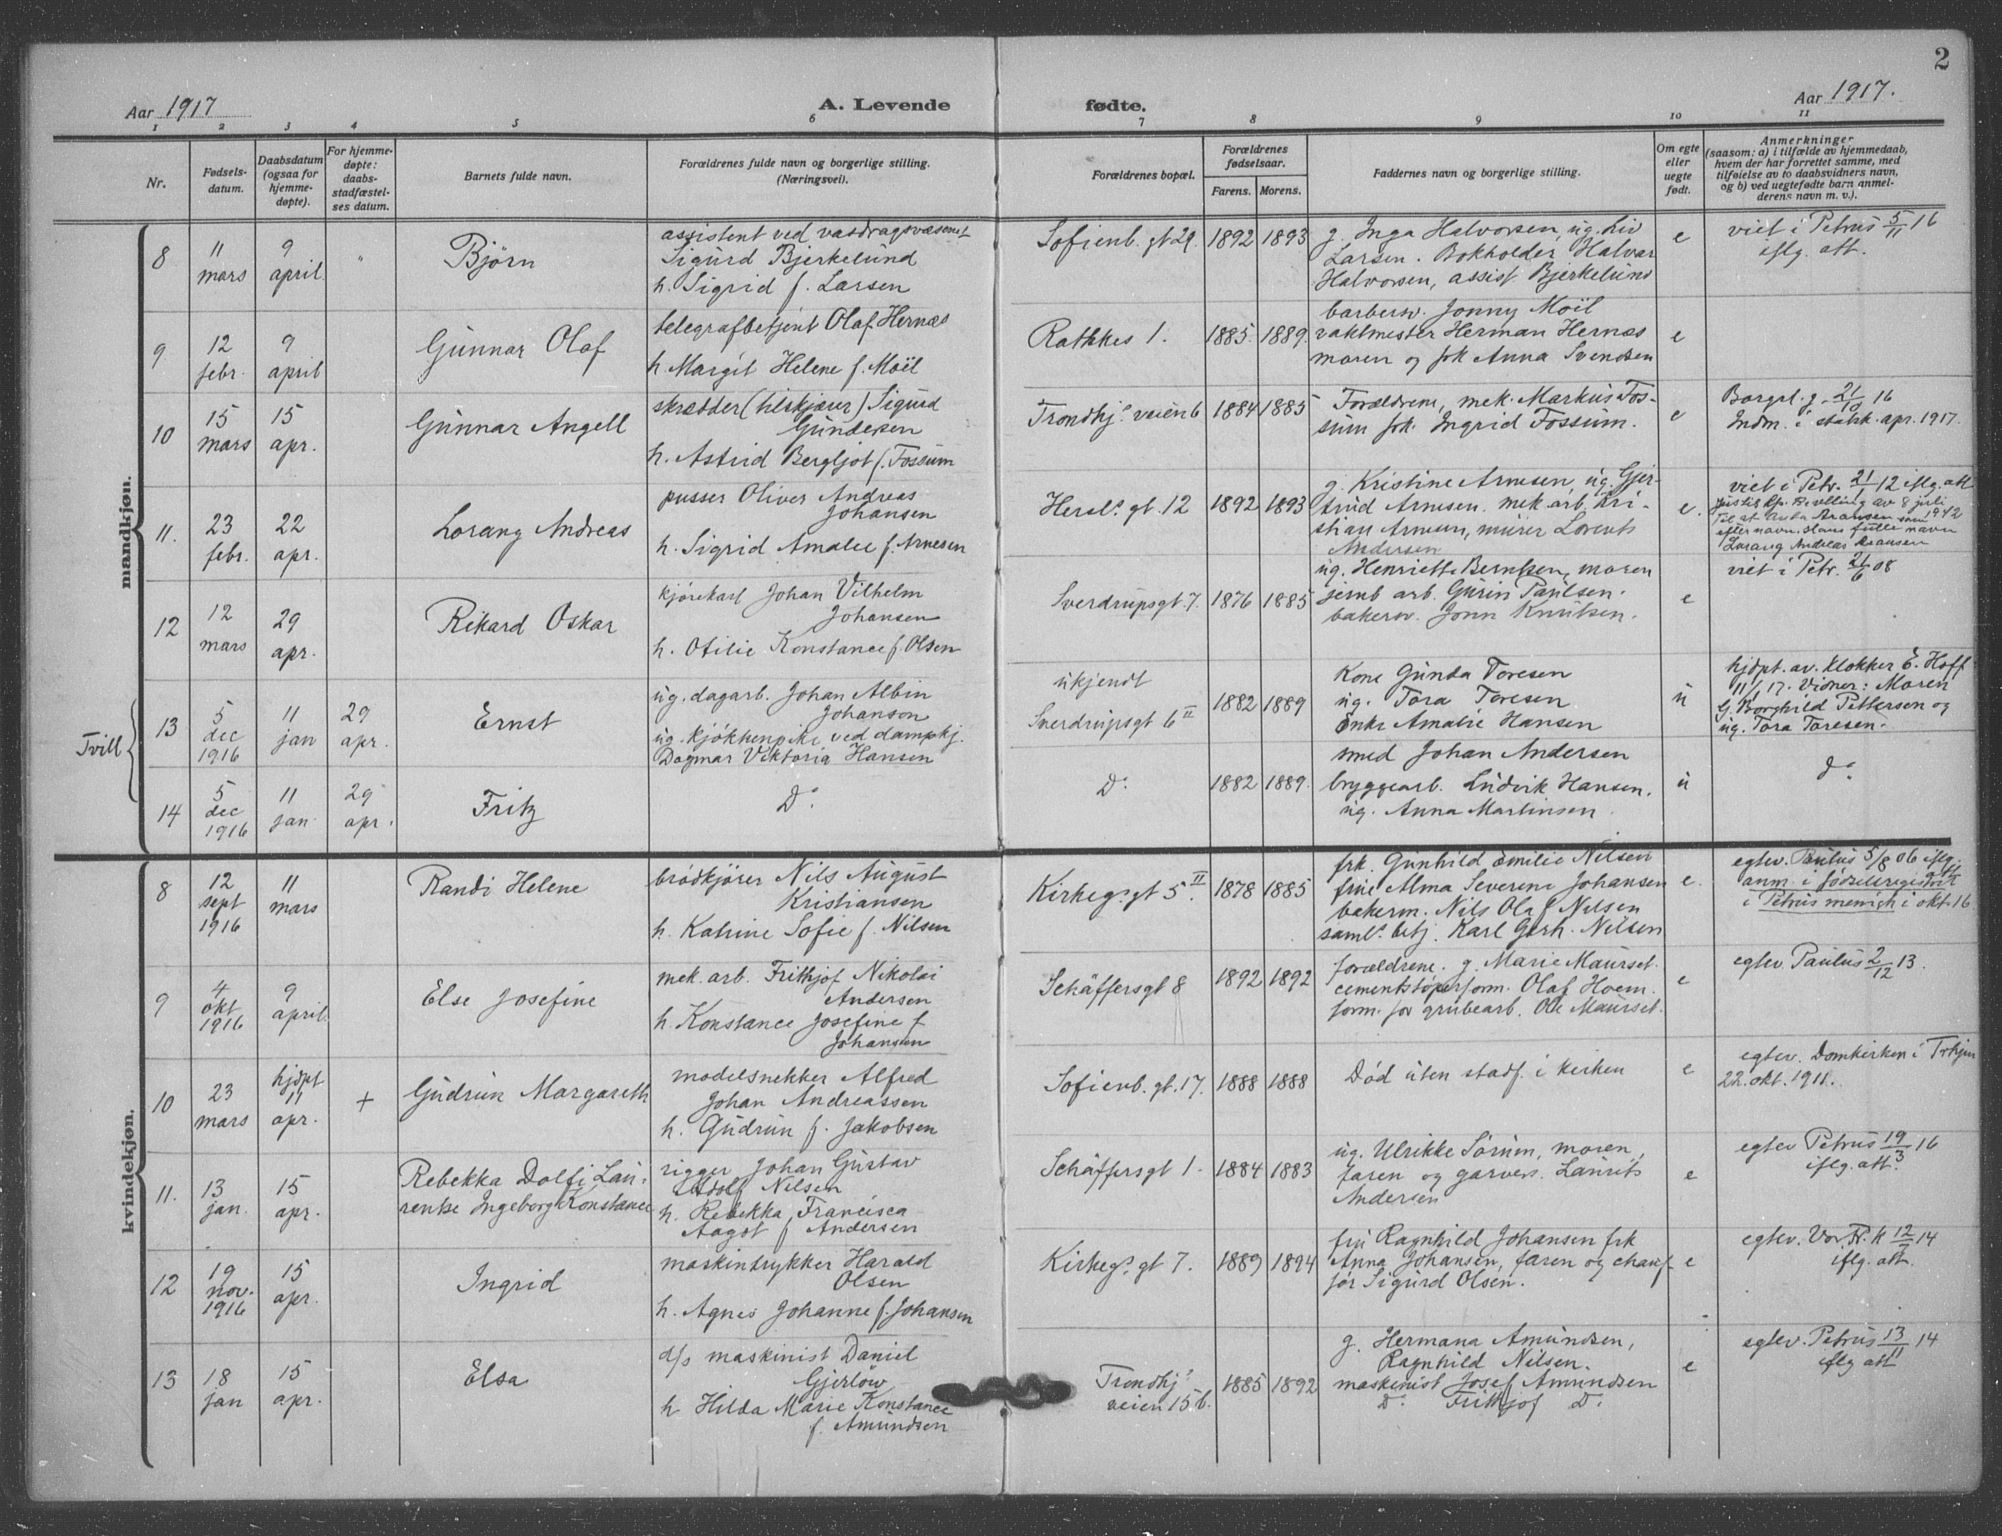 2
Aar 1917
A. Levende
fødte.
Aar 1917.
1 2 3 4 5 6 7 8 9 10 11
Nr.
Fødsels-
datum.
Daabsdatum
(ogsaa for
hjemme-
døpte).
For hjemme-
døpte:
daabs-
stadfæstel-
ses datum.
Barnets fulde navn.
Forældrenes fulde navn og borgerlige stilling.
(Næringsvei).
Forældrenes bopæl.
Forældrenes
fødselsaar.
Farens. Morens.
Faddernes navn og borgerlige stilling.
Om egte
eller
uegte
født.
Anmerkninger
(saasom: a) i tilfælde av hjemmedaab,
hvem der har forrettet samme, med
tilføielse av to daabsvidners navn,
og b) ved uegtefødte barn anmel-
derens navn m. v.).
mandkjøn.
8
11
mars
9
april
"
Bjørn
assistent ved vasdragsvæsenet
Sigurd Bjerkelund
h. Sigrid f. Larsen
Sofienb. gt 21.
1892 1893
g. Inga Halvorsen, ug. Liv
Larsen. Bokholder Halvar
Halvorsen, assist. Bjerkelund
e
viet i Petrus 5/11 16
iflg. att.
9
12
febr.
9
april
Gunnar Olaf
telegrafbetjent Olaf Hernæs
h. Margit Helene f. Moïl
Rathkes 1.
1885. 1889.
barbersv. Jonny Moïl
vaktmester Herman Hernæs
moren og frk Anna Svendsen
e
10
15
mars
15
apr.
Gunnar Angell
skrædder (tilskjærer) Sigurd
Gundersen
h. Astrid Bergljot f. Fossum
Trondhj.s veien 6
1884 1885
Forældrene, mek. Markus Fos-
sum frk. Ingrid Fossum.
e
Borgel. g. 21/10 16
Indm. i statsk. apr. 1917.
11.
23
febr.
22
apr.
Lorang Andreas
pusser Oliver Andreas
Johansen
h. Sigrid Amalie f. Arnesen
Hersl.s gt. 12
1892 1893
g. Kristine Arnesen, ug. Gjer-
trud Arnesen. mek. arb. Kri-
stian Arnesen, murer Lorents
Andersen
e.
viet i Petr. 21/1 12 iflg. att
av 8 juli
1942
efternavn. Hans fulle navn
Lorang Andreas
12
12
mars
29
apr.
Rikard Oskar
kjørekarl Johan Vilhelm
Johansen
h. Otilie Konstance f. Olsen
Sverdrupsgt. 7.
1876 1885
ug. Henriette Berntsen, moren
jernb arb. Gurin Paulsen.
bakersv. Jonn Knutsen.
e
viet i Petr. 21/6 08
Tvill
13
5
dec
1916
11
jan
29
apr.
Ernst
ug. dagarb. Johan Albin
Johanson
ug. kjøkkenpike ved dampkj.
Dagmar Viktoria Hansen
ukjendt
Sverdrupsgt 6 II
1882 1889
Kone Gunda Toresen
ug. Tora Toresen
Enke Amalie Hansen
u
hjdpt. av. klokker E. Hoff
11/1 17. Vidner: Moren
G. Borghild Pettersen og
ug. Tora Toresen.
14
5
dec
1916
11
jan
29
apr.
Fritz
Do.
Do.
1882 1889.
smed Johan Andersen
bryggearb. Ludvik Hansen.
ug. Anna Martinsen
u
do.
kvindekjøn.
8
12
sept
1916
11
mars
Randi Helene
brødkjører Nils August
Kristiansen
h. Katrine Sofie f. Nilsen
Kirkeg.s gt 5 II.
1878 1885
frk. Gunhild Emilie Nilsen
frue Alma Severine Johansen
bakerm. Nils Olaf Nilsen
saml.s betj. Karl Gerh. Nilsen
e.
egtev. Paulus 5/8 06 iflg. att
anm. i fødselsregistr
i Petrus menigh i okt. 16
9
4
okt
1916
9
april
Else Josefine
mek. arb. Frithjof Nikolai
Andersen
h. Konstance Josefine f
Johansen
Schäffersgt 8
1892 1892
forældrene. g. Marie Maurset.
cementstøperform. Olaf Hoem.
form. for grubearb. Ole Maurset.
e
egtev Paulus 2/12 13.
10
23
mars
hjdpt
11
apr.
+
Gudrun Margareth
modelsnekker Alfred
Johan Andreassen
h. Gudrun f. Jakobsen
Sofienb. gt. 17.
1888 1888
Død uten stadf. i kirken
e
egtev. Domkirken i Trhjm
22. okt. 1911.
11.
13
jan.
15
apr.
Rebekka Dolfi Lau-
rentse Ingeborg Konstance
rigger Johan Gustav
Adolf Nilsen
h. Rebekka Francisca
Aagot f Andersen
Schäffersgt 1.
1884 1883
ug. Ulrikke Sørum, moren,
faren og garvers. Laurits
Andersen
e
egtev Petrus 19/3 16
iflg. att.
12
19
nov.
1916
15
apr.
Ingrid
maskintrykker Harald
Olsen
h. Agnes Johanne f. Johansen
Kirkeg.s gt 7.
1889 1894
fru Ragnhild Johansen frk
Anna Johansen, faren og chauf-
før Sigurd Olsen.
e
egtev. Vor Fr. k 12/7 14
iflg. att.
13
18
jan
15
apr.
Elsa
d/s maskinist Daniel
Gjerløw
h Hilda Marie Konstance
f. Amundsen
Trondhj.s
veien 15 b.
1885 1892
g. Hermana Amundsen,
Ragnhild Nilsen.
maskinist Josef Amundsen
Do. Frithjof Do.
e
egtev. Petrus 13/11 14
iflg att